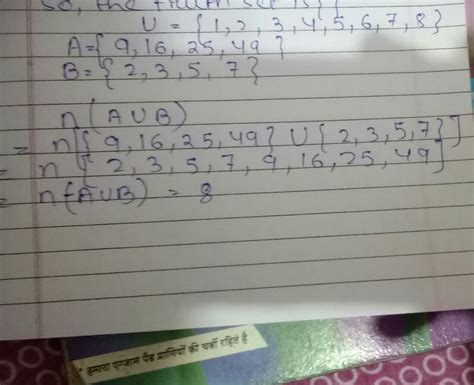 So, the
U = {1, 2, 3, 4, 5, 6, 7, 8}
A={ 9, 16, 25, 49 }
B={ 2, 3, 5, 7 }
n(A∪B)
= n[{ 9, 16, 25, 49} ∪ { 2, 3, 5, 7}]
= n [ 2, 3, 5, 7, 9, 16, 25, 49]
= n(A∪B) = 8
हमारा एग्जाम पैड प्राणियों की चर्बी रहित है